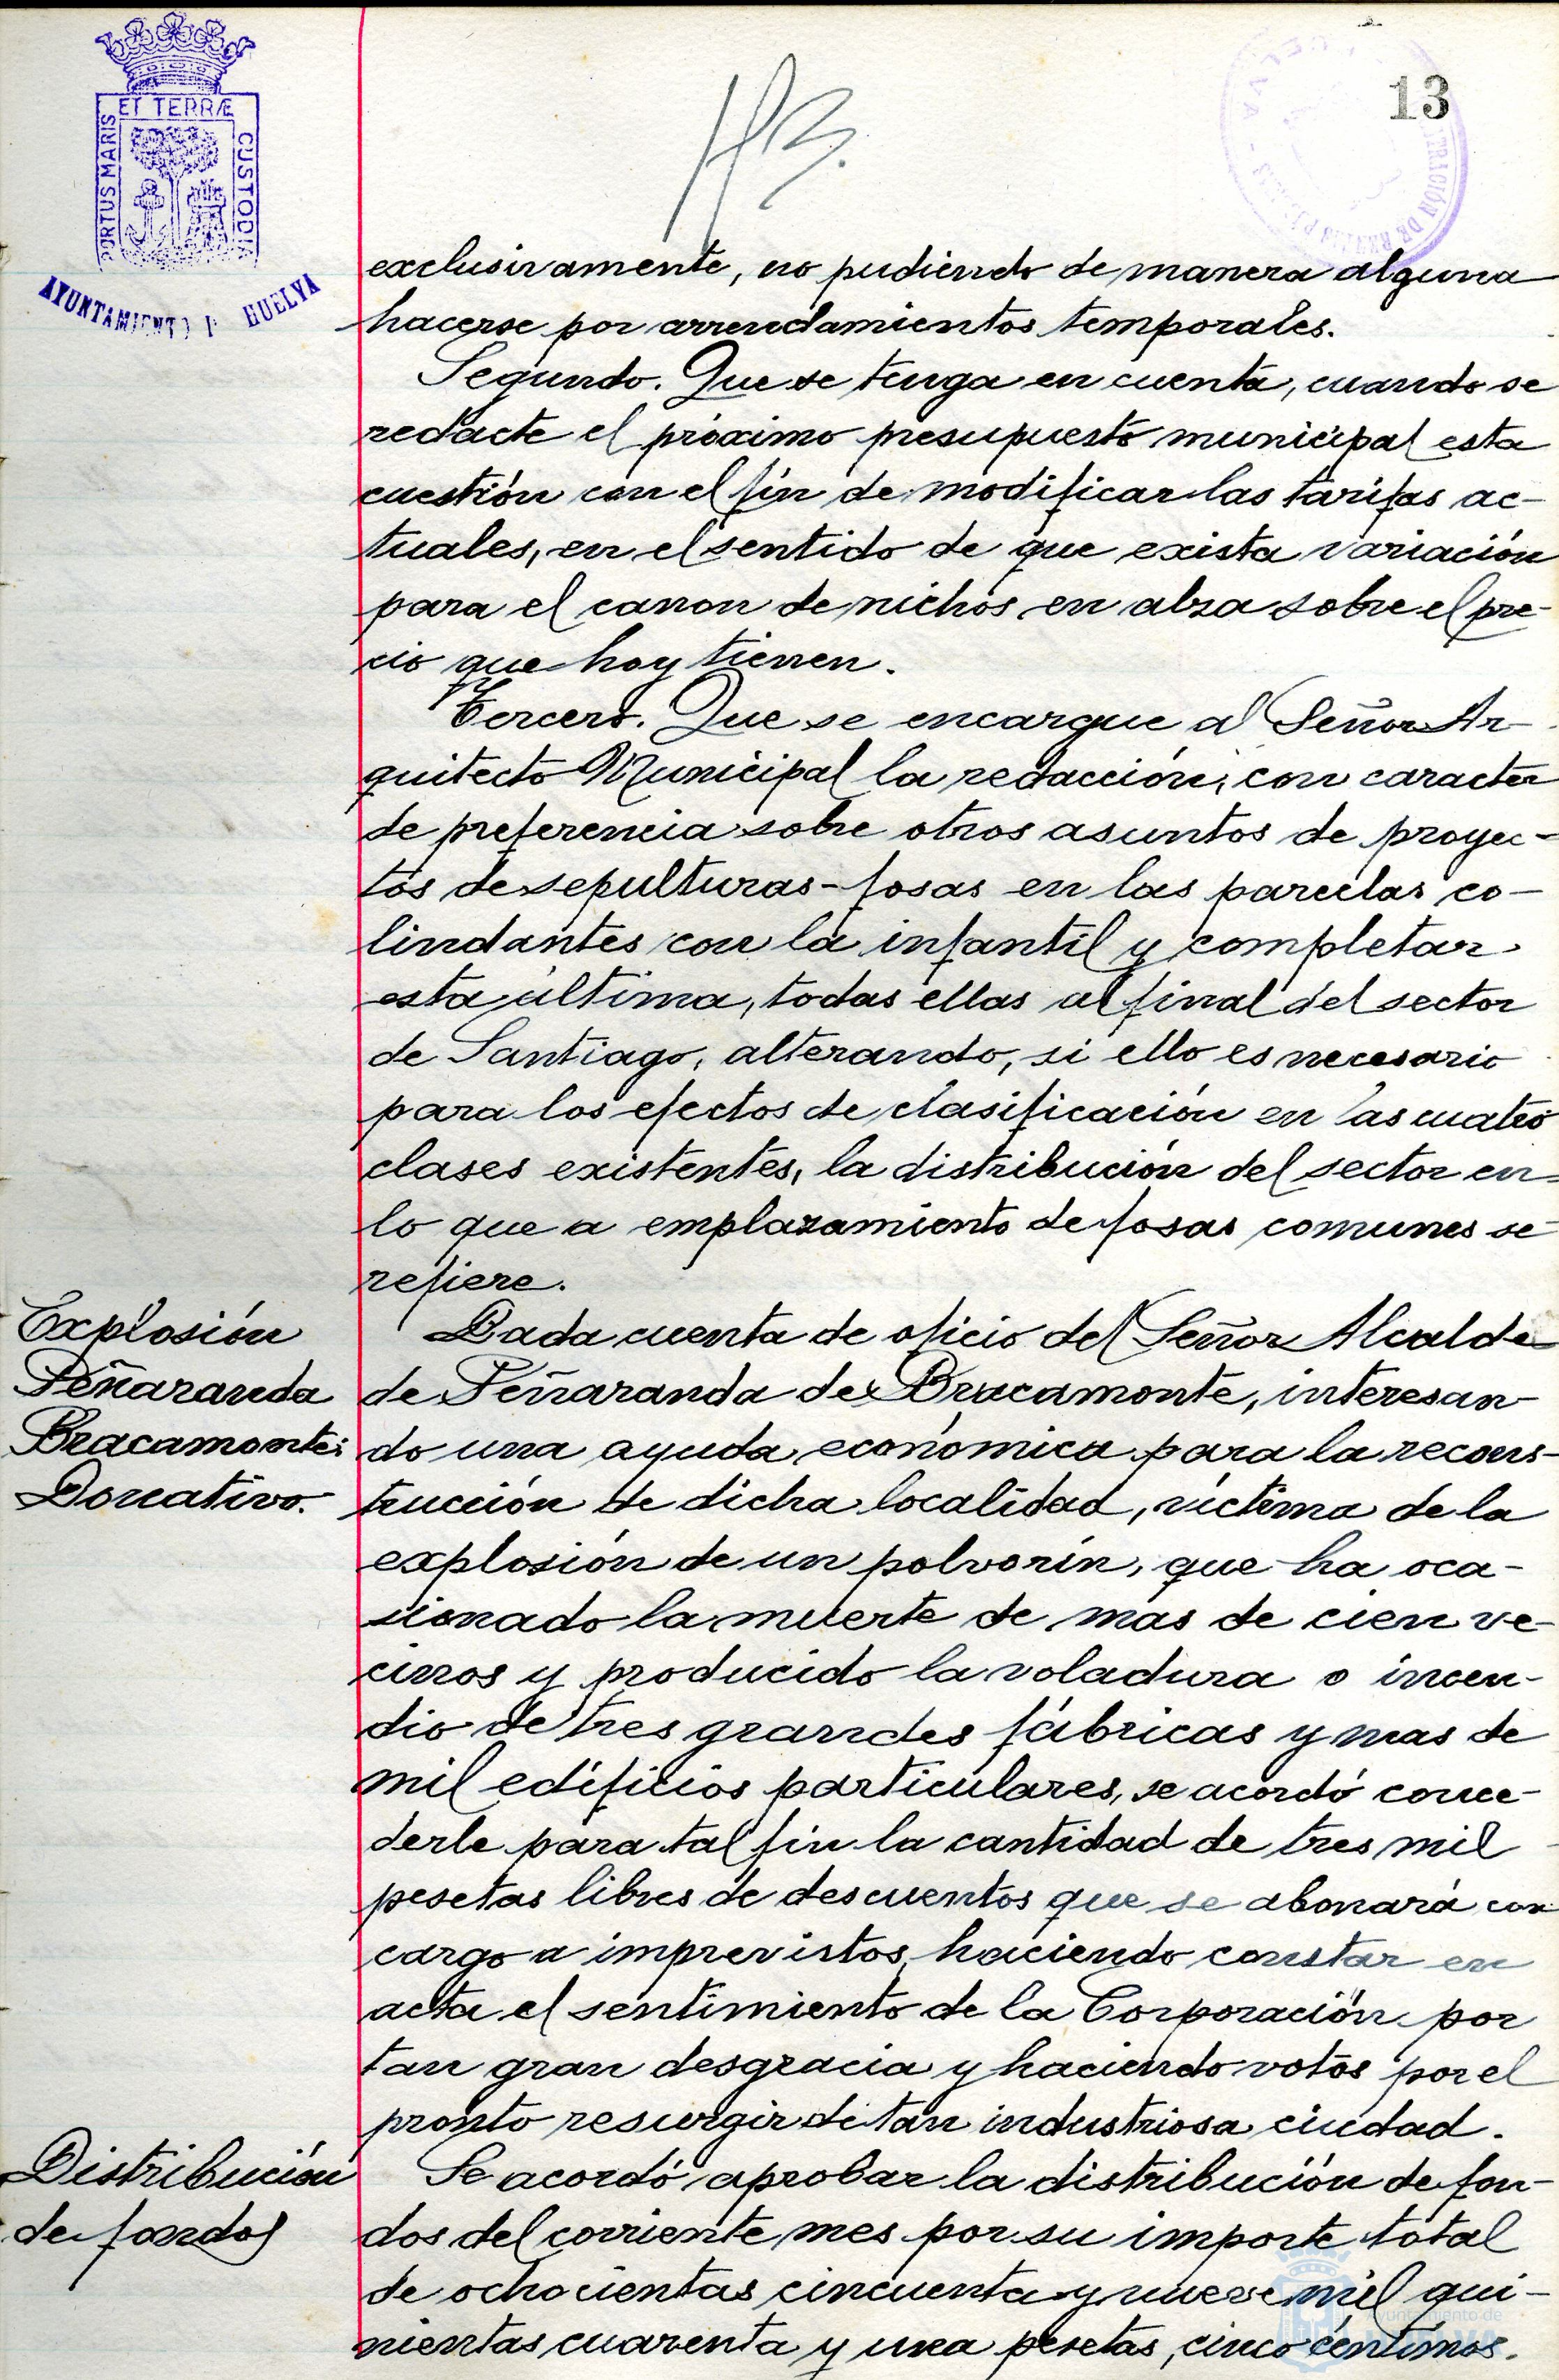 13
ET TERRÆ
PORTUS MARIS
CUSTODIA
AYUNTAMIENTO HUELVA
exclusivamente, no pudiendo de manera alguna
hacerse por arrendamientos temporales.
Segundo. Que se tenga en cuenta, cuando se
redacte el próximo presupuesto municipal esta
cuestión con el fin de modificar las tarifas ac-
tuales, en el sentido de que exista variación
para el canon de nichos en alza sobre el pre-
cio que hoy tienen.
Tercero. Que se encargue al Señor Ar-
quitecto Municipal la redacción, con caracter
de preferencia sobre otros asuntos de proyec-
tos de sepulturas-fosas en las parcelas co-
lindantes con la infantil y completar
esta última, todas ellas al final del sector
de Santiago, alterando, si ello es necesario
para los efectos de clasificación en las cuatro
clases existentes, la distribución del sector en
lo que a emplazamiento de fosas comunes se
refiere.
Explosión
Peñaranda
Bracamonte:
Donativo.
Dada cuenta de oficio del Señor Alcalde
de Peñaranda de Bracamonte, interesan-
do una ayuda económica para la recons-
trucción de dicha localidad, víctima de la
explosión de un polvorín, que ha oca-
sionado la muerte de mas de cien ve-
cinos y producido la voladura o incen-
dio de tres grandes fábricas y mas de
mil edificios particulares, se acordó conce-
derle para tal fin la cantidad de tres mil
pesetas libres de descuentos que se abonará con
cargo a imprevistos, haciendo constar en
acta el sentimiento de la Corporación por
tan gran desgracia y haciendo votos por el
pronto resurgir de tan industriosa ciudad.
Distribución
de fondos
Se acordó aprobar la distribución de fon-
dos del corriente mes por su importe total
de ochocientas cincuenta y nueve mil qui-
nientas cuarenta y una pesetas, cinco céntimos.
Ayuntamiento de
HUELVA